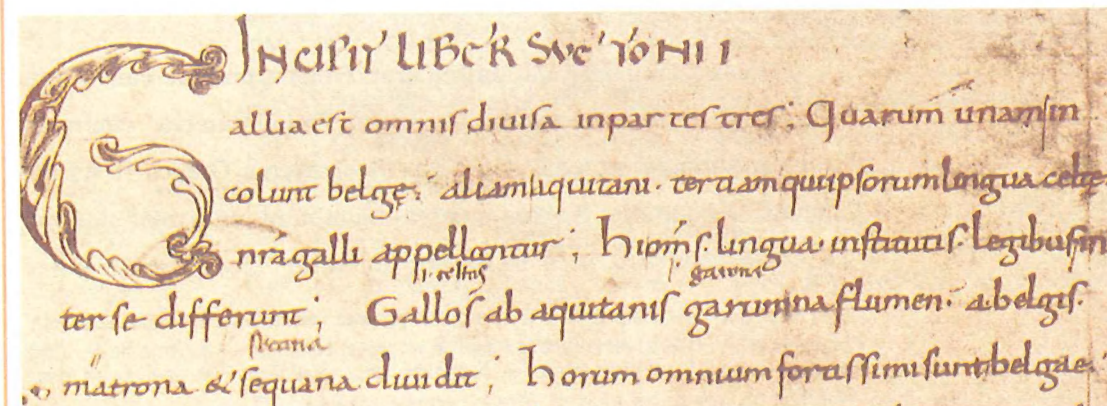 INCIPIT LIBER SVETONII
Gallia est omnis diuisa in partes tres; Quarum unam in
colunt belgę; aliam aquitani. tertiam qui ipsorum lingua celtę
nr̄a galli appellantur; hi om̄s. lingua. institutis. legibus in
.i. celtas
ter se differunt; Gallos ab aquitanis garunna flumen. a belgis.
secana
matrona & sequana diuidit; horum omnium fortissimi sunt belgae.